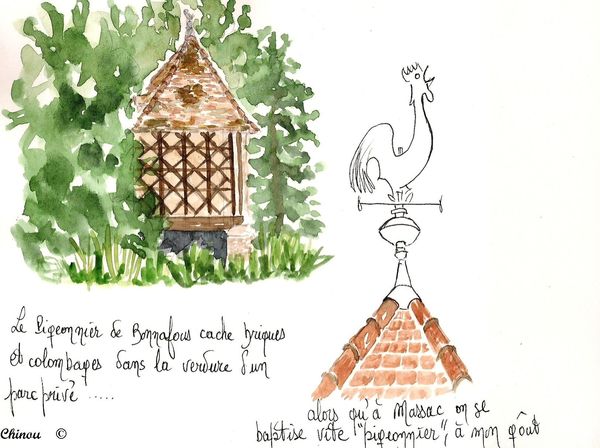 Le Pigeonnier de Bonnafous cache briques
et colombages dans la verdure d'un
parc privé .....
alors qu'à Massac on se
baptise vite "pigeonnier", à mon goût
Chinou ©